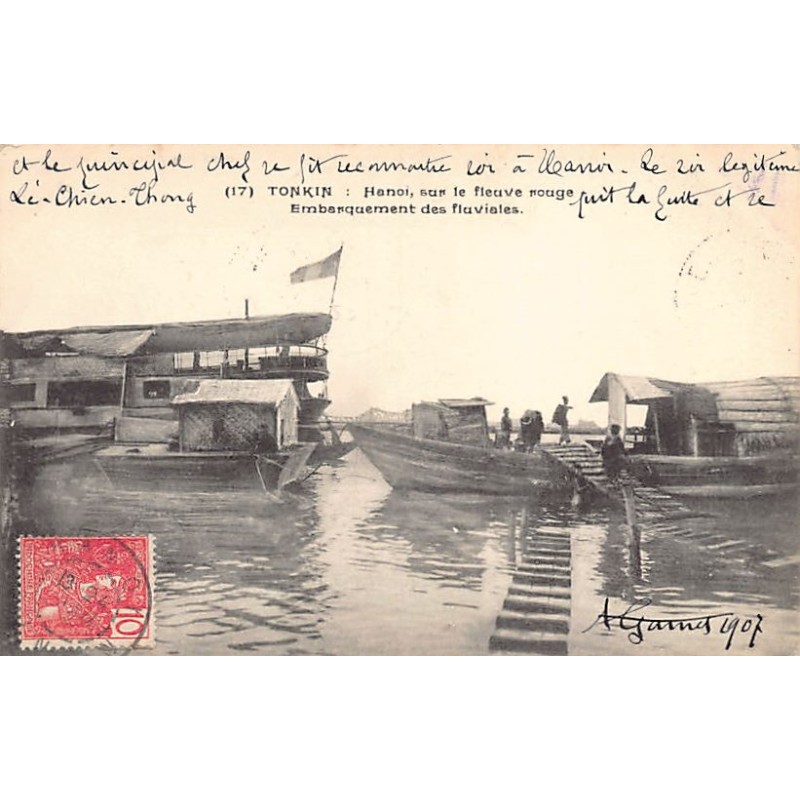 et le principal chef se fit reconnaitre roi à Hanoi. Le roi legitime
Lé-Chien-Thong
(17) TONKIN : Hanoi, sur le fleuve rouge
prit la fuite et se
Embarquement des fluviales.
10
1907